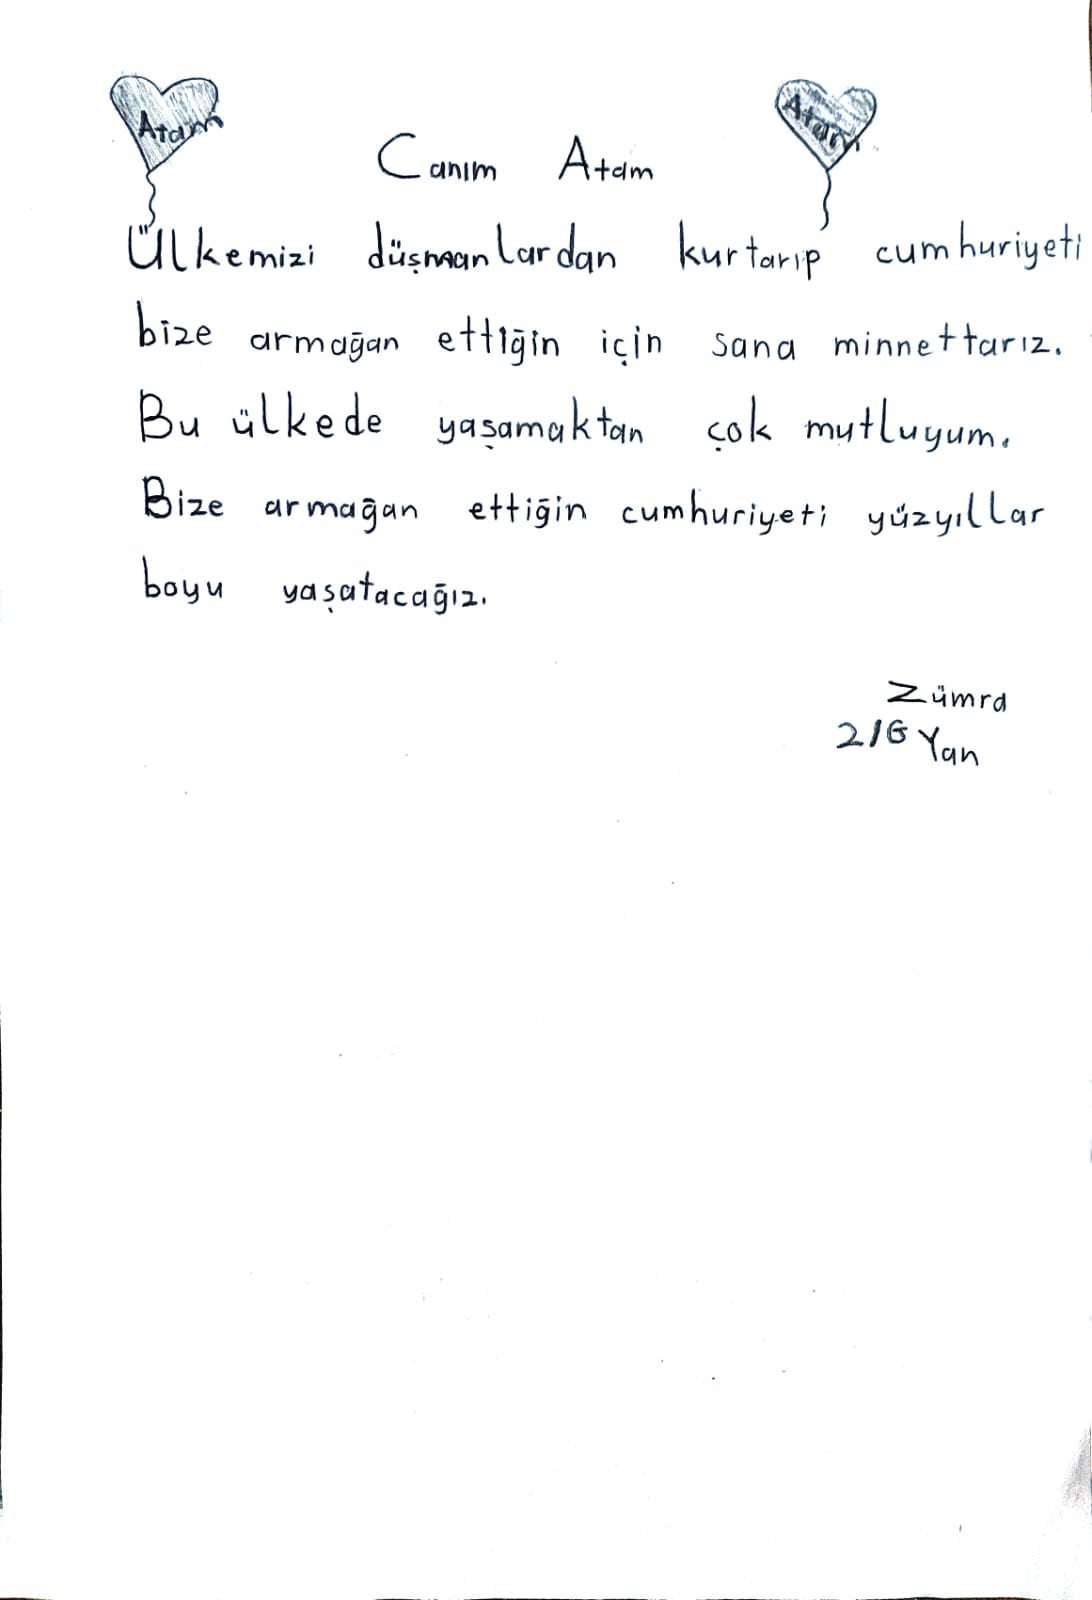 Atam
Atam
Canım Atam
Ülkemizi düşmanlardan kurtarıp cumhuriyeti
bize armağan ettiğin için sana minnettarız.
Bu ülkede yaşamaktan çok mutluyum.
Bize armağan ettiğin cumhuriyeti yüzyıllar
boyu yaşatacağız.
Zümra
2/G Yan